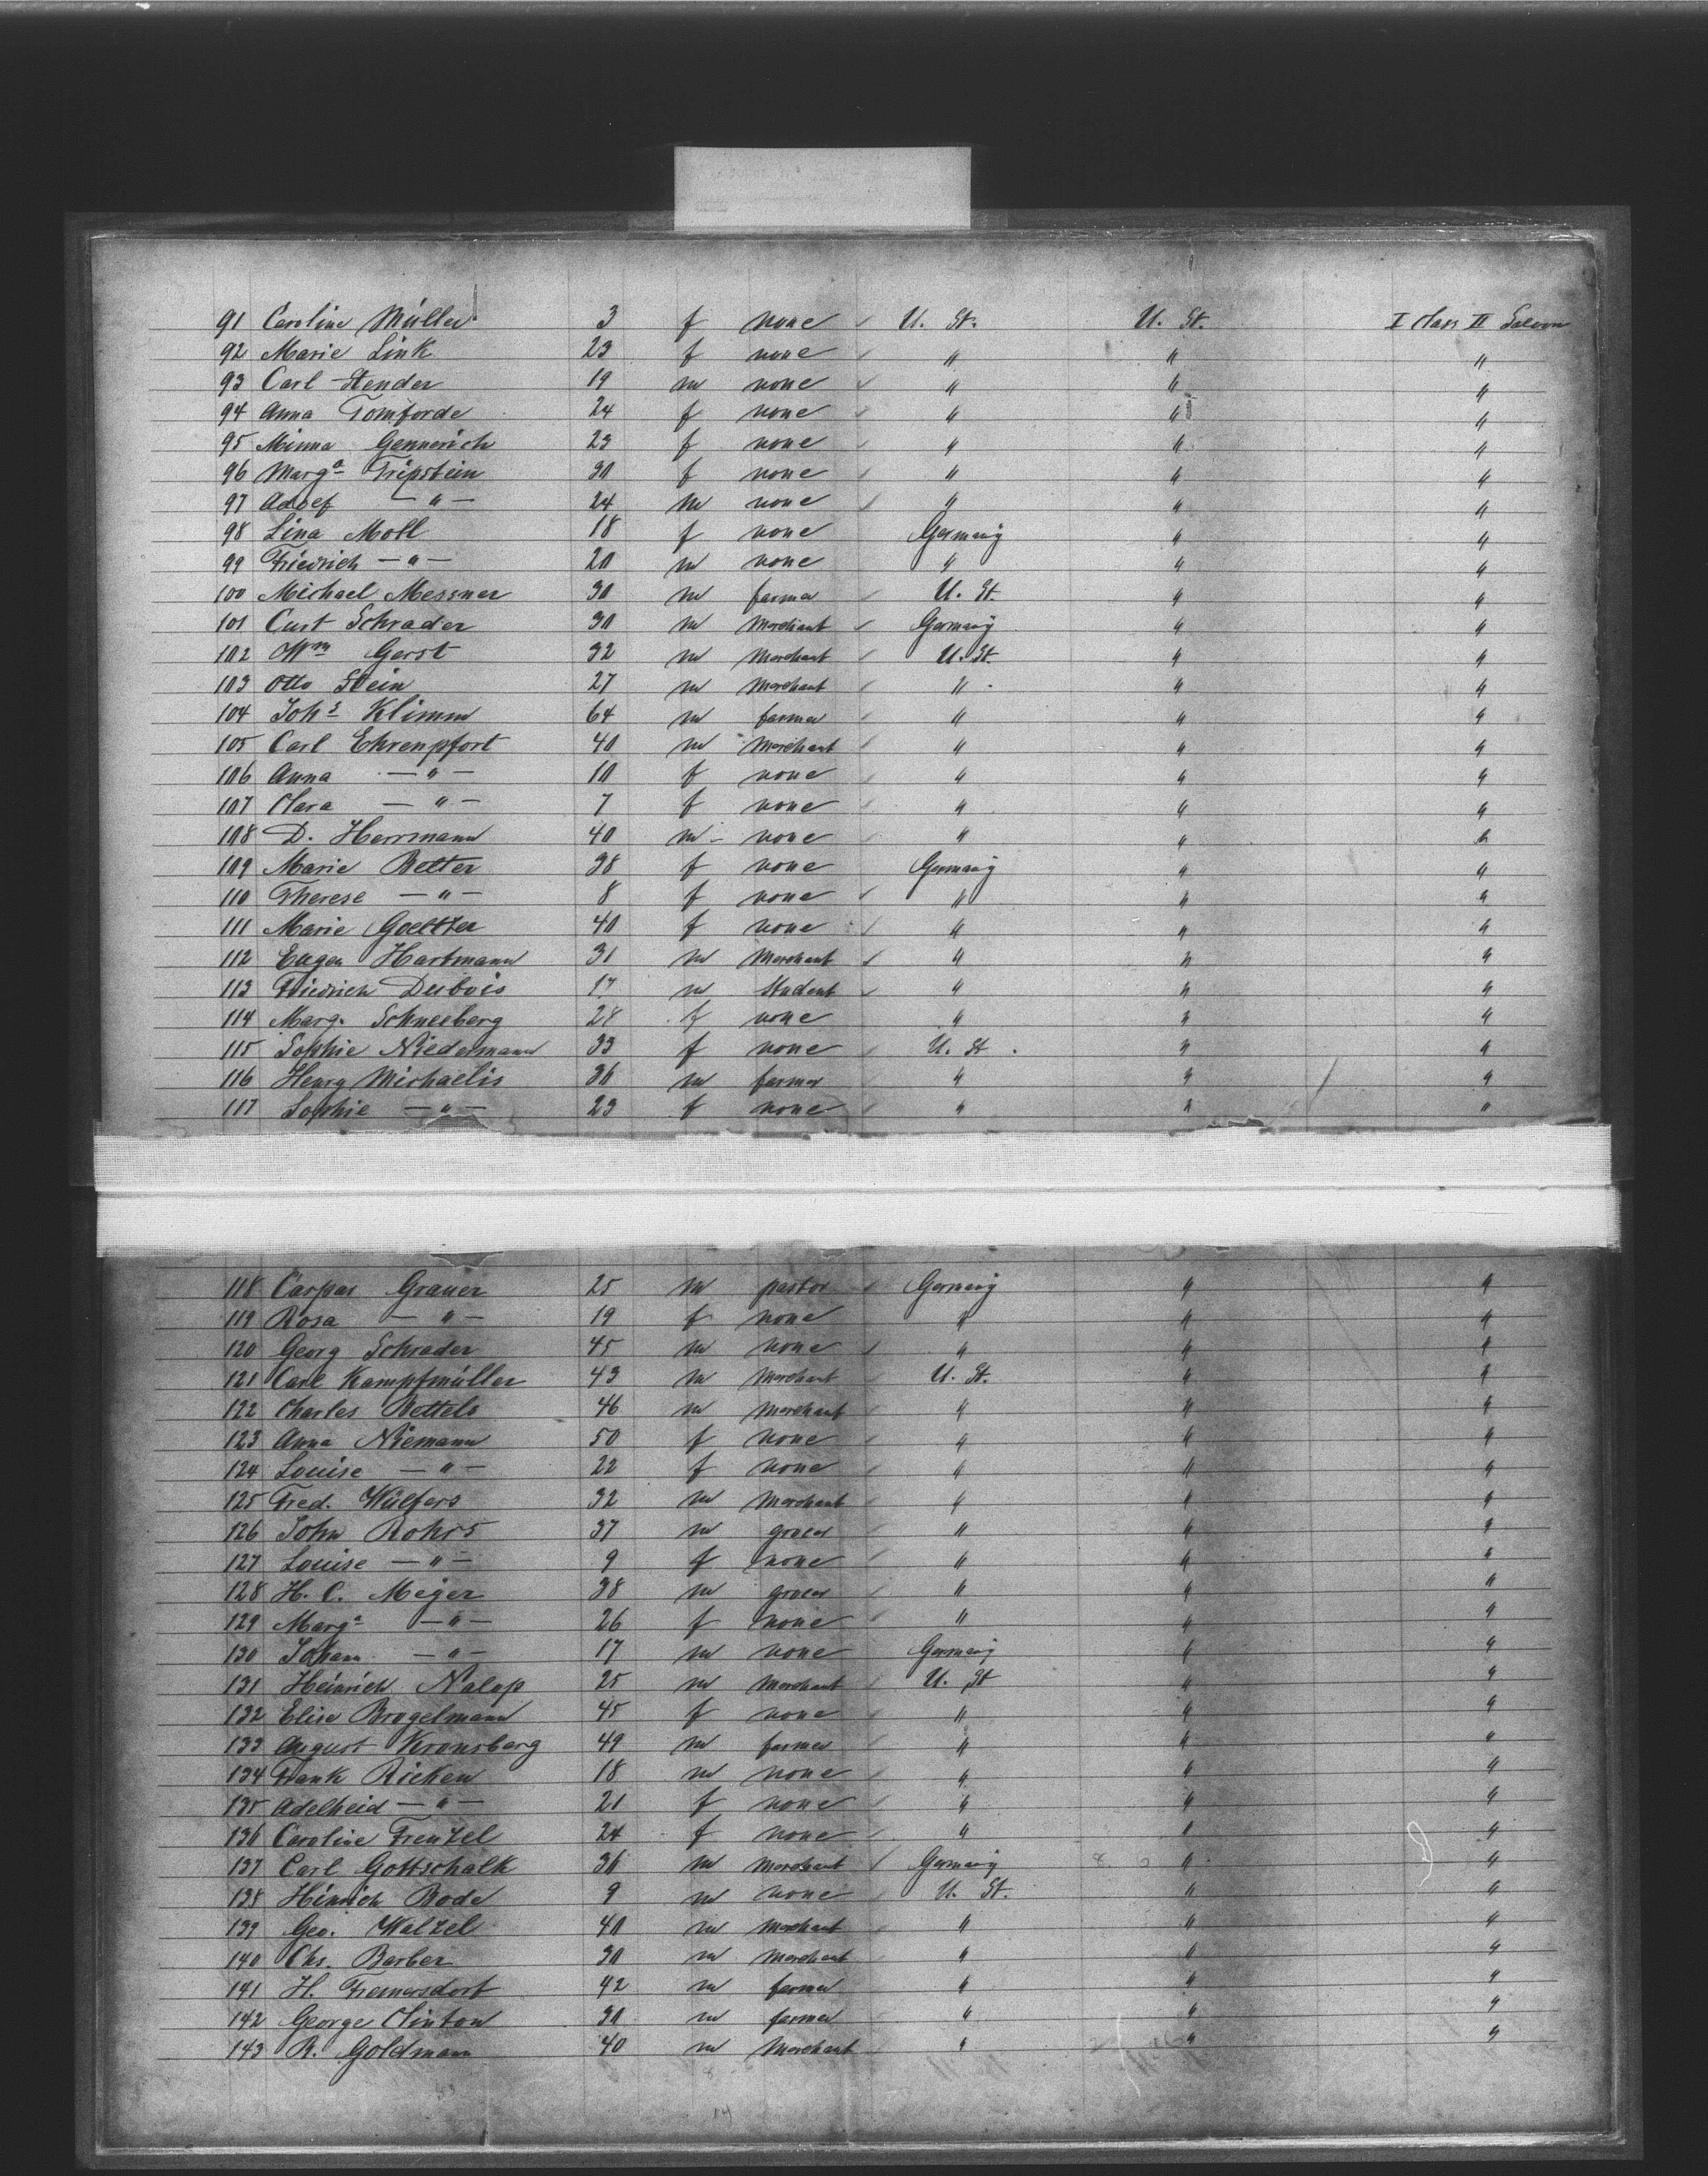 91 Caroline Müller 3 f none U. St. U. St. I class II Saloon
92 Marie Link 23 f none " " "
93 Carl Stender 19 m none " " "
94 Anna Tomforde 24 f none " " "
95 Minna Gennerich 23 f none " " "
96 Marga Tripstein 30 f none " " "
97 Adolf — " — 24 m none " " "
98 Lina Moll 18 f none Germany " "
99 Friedrich — " — 20 m none " " "
100 Michael Messner 30 m farmer U. St. " "
101 Curt Schrader 30 m Merchant Germany " "
102 Wm Gerst 32 m Merchant U. St. " "
103 Otto Stein 27 m Merchant " " "
104 Johs Klimm 64 m farmer " " "
105 Carl Ehrenpfort 40 m Merchant " " "
106 Anna — " — 10 f none " " "
107 Clara — " — 7 f none " " "
108 D. Herrmann 40 m none " " "
109 Marie Better 38 f none Germany " "
110 Therese — " — 8 f none " " "
111 Marie Goeltzer 40 f none " " "
112 Eugen Hartmann 31 m Merchant " " "
113 Friedrich Dubois 17 m Student " " "
114 Marg. Schneeberg 28 f none " " "
115 Sophie Niedermann 33 f none U. St. " "
116 Henry Michaelis 36 m farmer " " "
117 Sophie — " — 23 f none " " "
118 Caspar Grauer 25 m pastor Germany " "
119 Rosa — " — 19 f none " " "
120 Georg Schrader 45 m none " " "
121 Carl Kampfmüller 43 m Merchant U. St. " "
122 Charles Bettels 46 m Merchant " " "
123 Anna Niemann 50 f none " " "
124 Louise — " — 22 f none " " "
125 Fred. Wülfers 32 m Merchant " " "
126 John Rohrs 37 m grocer " " "
127 Louise — " — 9 f none " " "
128 H. C. Meÿer 38 m grocer " " "
129 Marga — " — 26 f none " " "
130 Johann — " — 17 m none Germany " "
131 Heinrich Nalop 25 m Merchant U. St " "
132 Elise Brugelmann 45 f none " " "
133 August Kronsberg 49 m farmer " " "
134 Frank Ricken 18 m none " " "
135 Adelheid — " — 21 f none " " "
136 Caroline Frenzel 24 f none " " "
137 Carl Gottschalk 36 m Merchant Germany " "
138 Hinrich Bode 9 m none U. St. " "
139 Geo. Walzel 40 m Merchant " " "
140 Chs. Barber 30 m Merchant " " "
141 H. Fremersdorf 42 m farmer " " "
142 George Clinton 30 m farmer " " "
143 R. Goldmann 40 m Merchant " " "
14